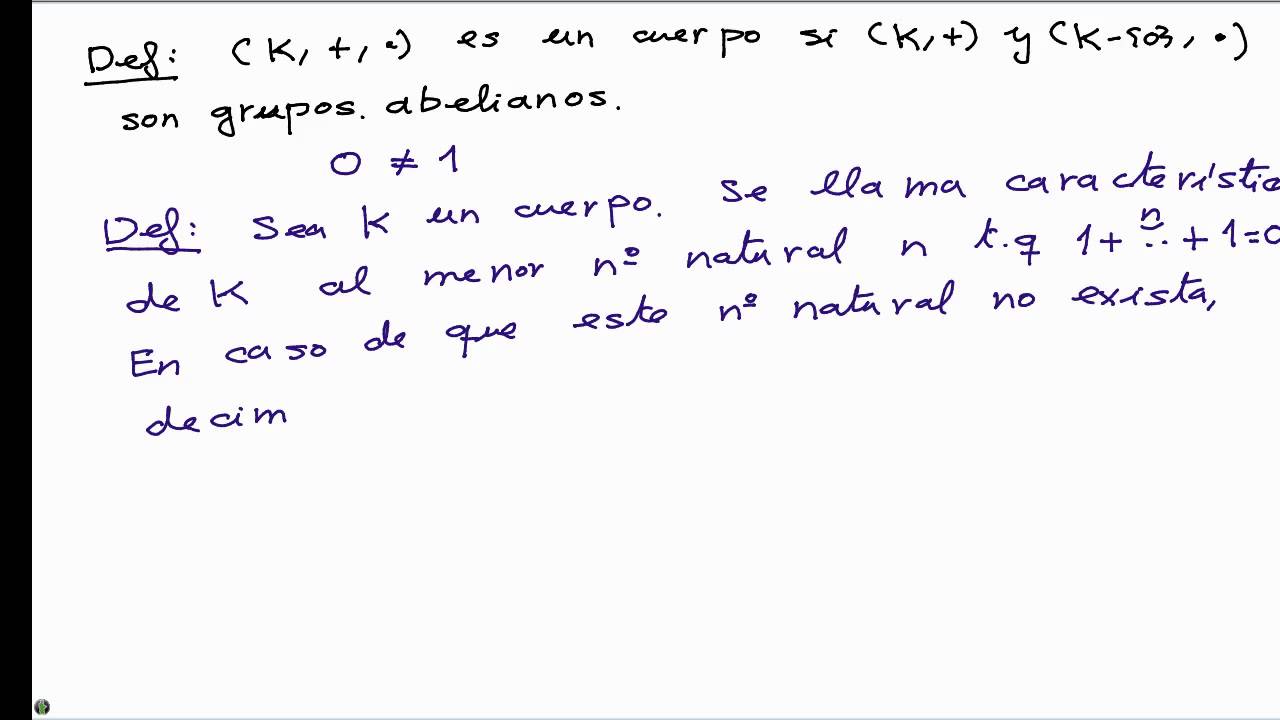 Def: (K, +, ·) es un cuerpo si (K, +) y (K-{0}, ·)
son grupos. abelianos.
0 ≠ 1
Def: Sea K un cuerpo. Se llama característic
de K al menor nº natural n t.q 1+ n⏞.. +1=0
En caso de que este nº natural no exista,
decim